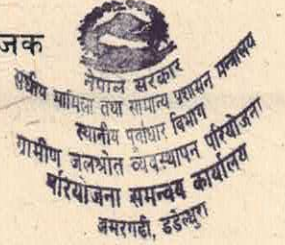 जक
नेपाल सरकार
संघीय मामिला तथा सामान्य प्रशासन मन्त्रालय
स्थानीय पूर्वाधार विभाग
ग्रामीण जलश्रोत व्यवस्थापन परियोजना
परियोजना समन्वय कार्यालय
अमरगढी, डडेल्धुरा